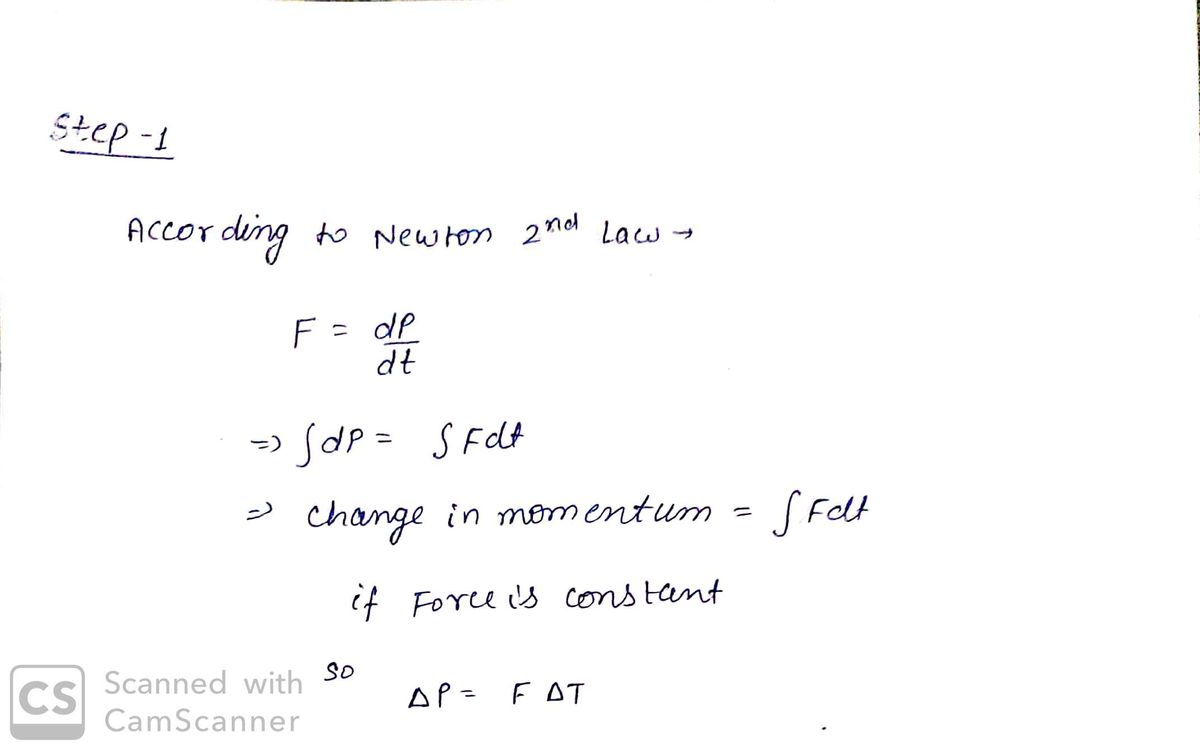 Step-1
According to Newton 2nd Law →
F = dP
dt
=> ∫dP = ∫Fdt
=> change in momentum = ∫Fdt
if Force is constant
so
ΔP = F ΔT
CS Scanned with
CamScanner